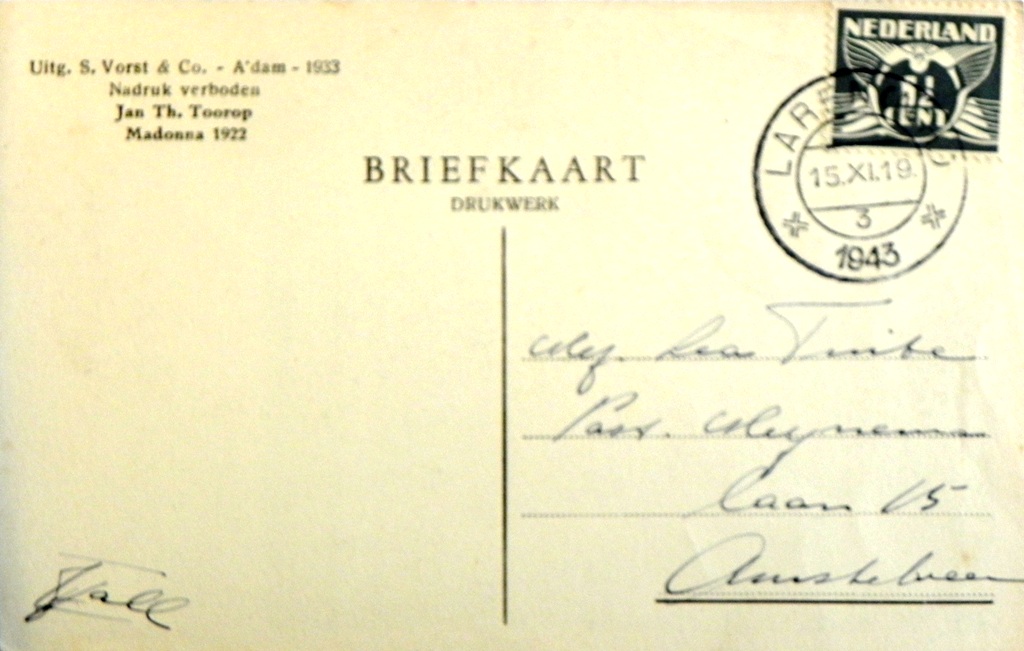 Uitg. S. Vorst & Co. - A'dam - 1933
Nadruk verboden
Jan Th. Toorop
Madonna 1922
BRIEFKAART
DRUKWERK
NEDERLAND
1½
CENT
LAREN
15.XI.19.
3
1943
Mej.
Past. Meyneman
laan 15
Amstelveen